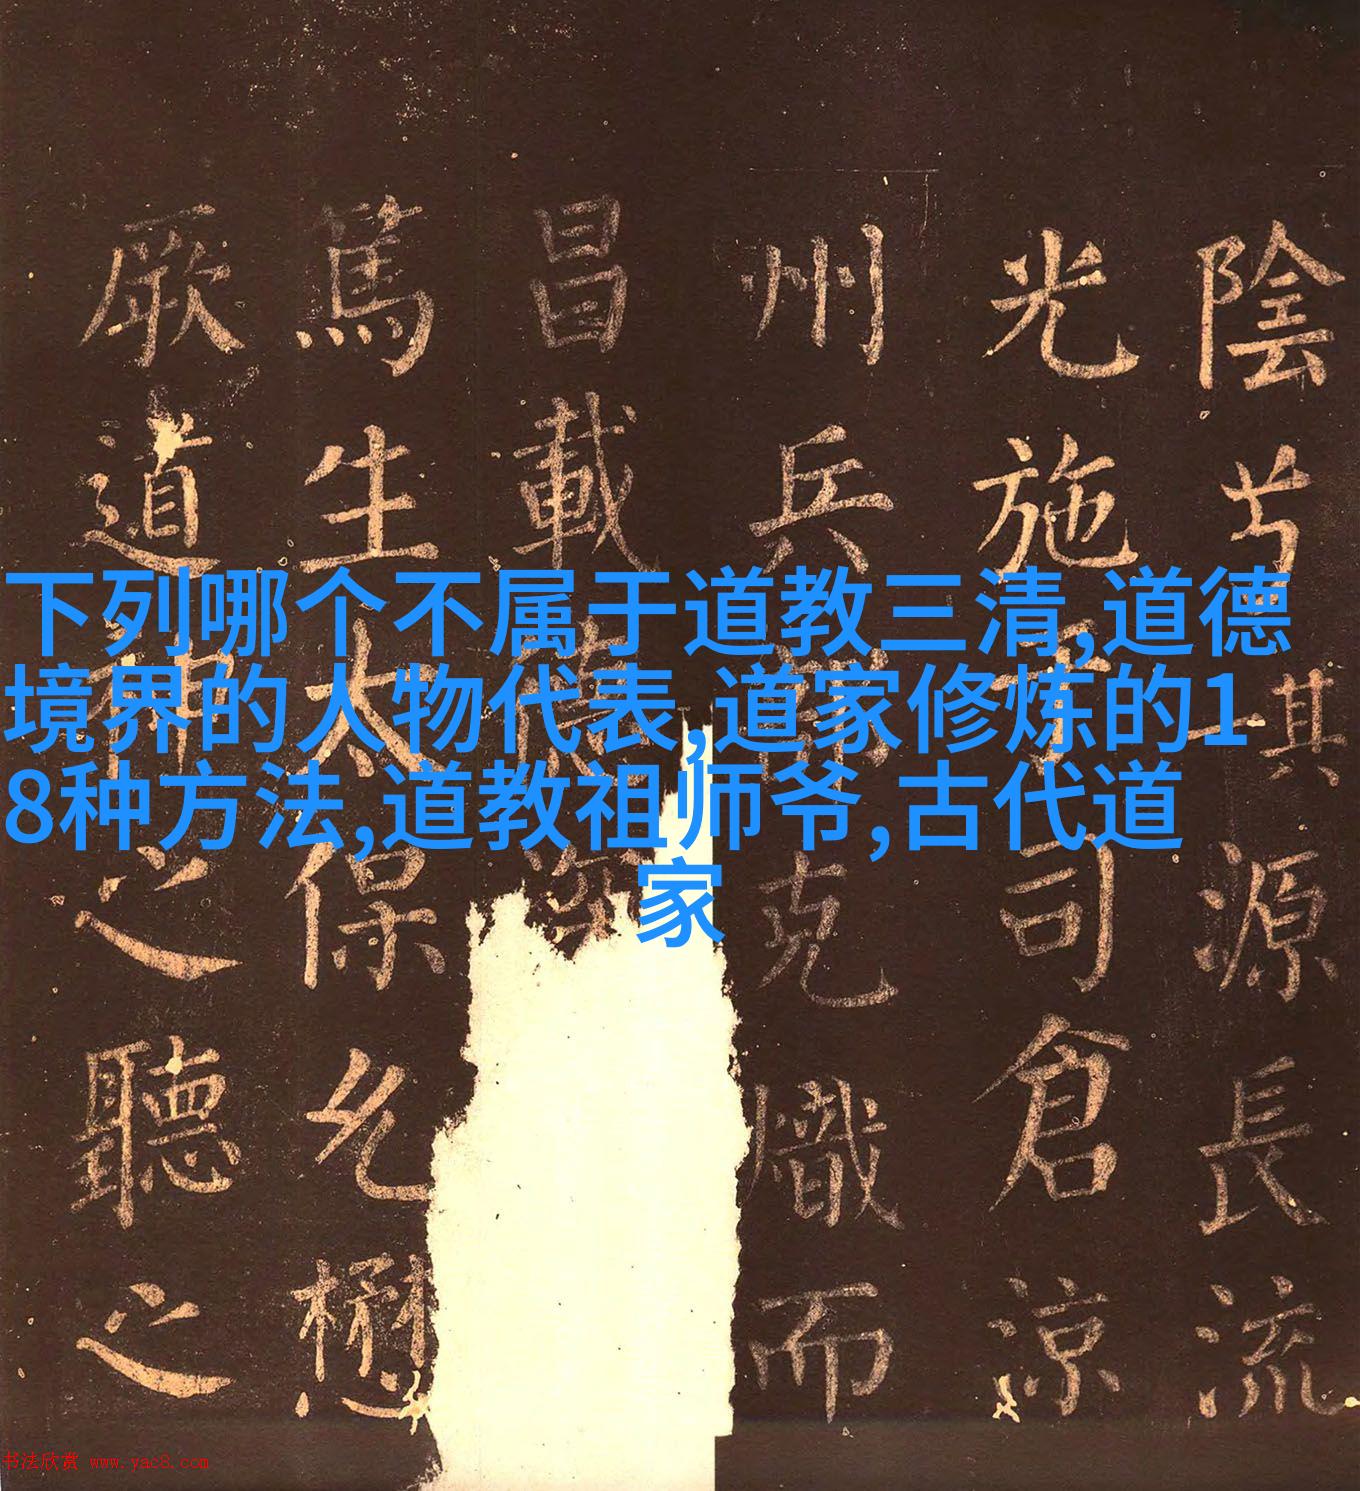 下列哪个不属于道教三清,道德
境界的人物代表,道家修炼的1
8种方法,道教祖师爷,古代道
家
陰其源長流
光施于司倉涼
州兵克熾而
昌載
篤生太保允懋
厥道神之聽之
书法欣赏 www.yac8.com